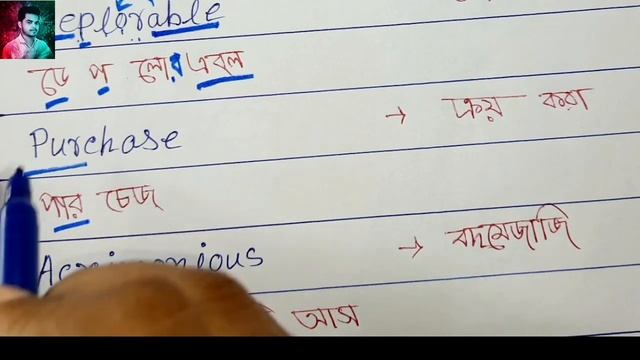 eplorable
ডে প লোর এবল
Purchase → ক্রয় করা
পার চেজ
→ বদমেজাজি
আস